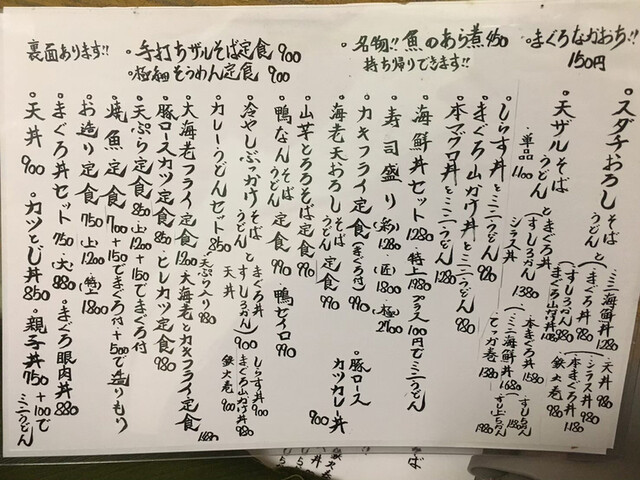 裏面あります!!
・手打ちザルそば定食 900
・極細そうめん定食 900
・名物!!魚のあら煮 450
持ち帰りできます!!
・まぐろなかおち!!
150円
・スダチおろしそばうどんと
ミニ海鮮丼 1280
まぐろ丼 980
すしうかん 980
まぐろ山かけ丼 1080
・天丼 980
シラス丼 980
本まぐろ丼 1180
鉄火巻 980
・天ザルそばうどんとまぐろ丼
・単品 1100
すしうかん 1380
シラス丼
・本まぐろ丼 1580
ミニ海鮮丼 1680
てっか巻 1380
・しらす丼とミニうどん 980
・まぐろ山かけ丼とミニうどん 980
・本マグロ丼とミニうどん 1280
・海鮮丼セット 1280 特上1980 プラス100円でミニうどん
・寿司盛り(彩)1280 (匠)1800 (極)2700
・カキフライ定食(まぐろ付)990
・海老天おろしそばうどん定食 990
・豚ロースカツカレー丼 900
・山芋とろろそば定食 990
・鴨なんそばうどん定食 990 ・鴨セイロ 990
・冷やしぶっかけそばうどんと
まぐろ丼
すしうかん
天丼
900
しらす丼 900
まぐろ山かけ丼 980
鉄火巻 900
・カレーうどんセット 850 天ぷら入り 980
・大海老フライ定食 1200 ・大海老とカキフライ定食 1480
・豚ロースカツ定食 850 ・ヒレカツ定食 980
・天ぷら定食 850(上)1200+150でまぐろ付
・焼魚定食 700+150でまぐろ付+500で造りもり
・お造り定食 750(上)1200(特)1800
・まぐろ丼セット 750・大880 ・まぐろ眼肉丼 880
・天丼 900 ・カツとじ丼 850 ・親子丼 750 +100でミニうどん